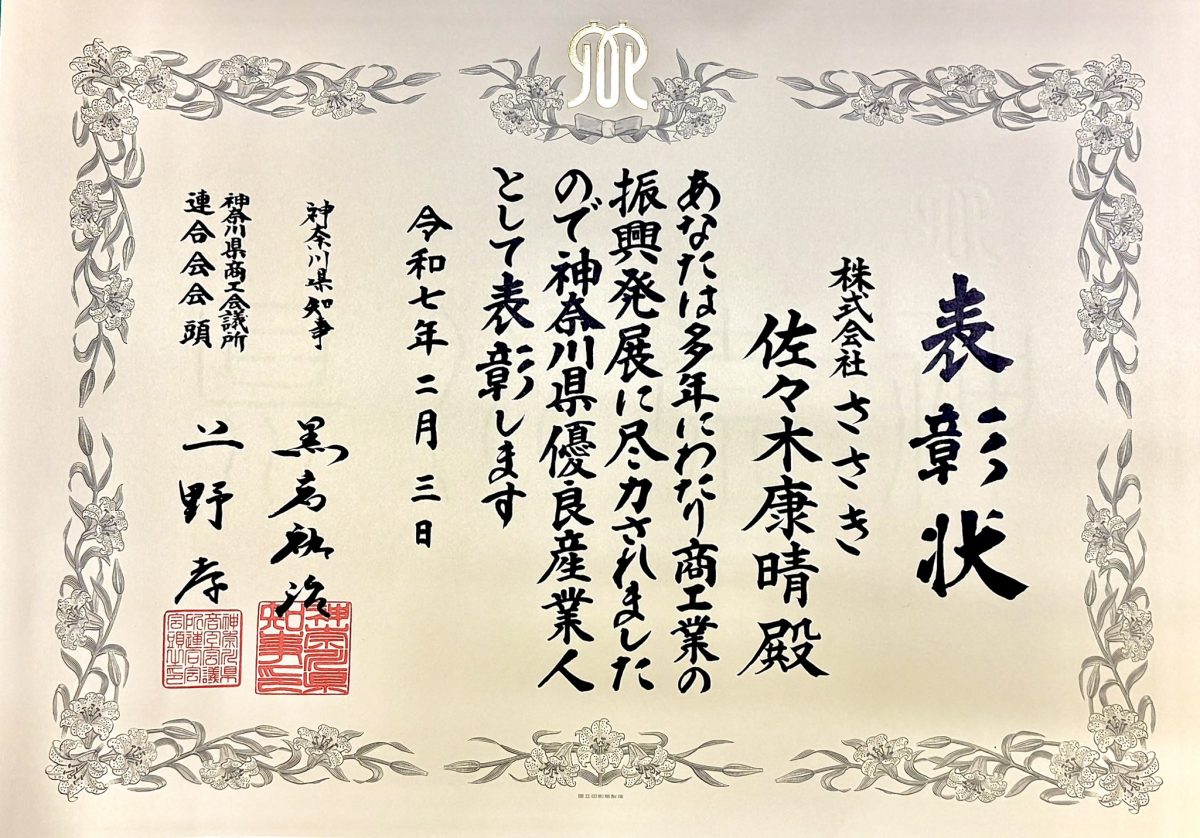 表彰状
株式会社 ささき
佐々木康晴殿
あなたは多年にわたり商工業の
振興発展に尽力されました
ので神奈川県優良産業人
として表彰します
令和七年二月三日
神奈川県知事 黒岩祐治
神奈川県商工会議所
連合会会頭 上野孝
神奈川県
知事之印
国立印刷局製造